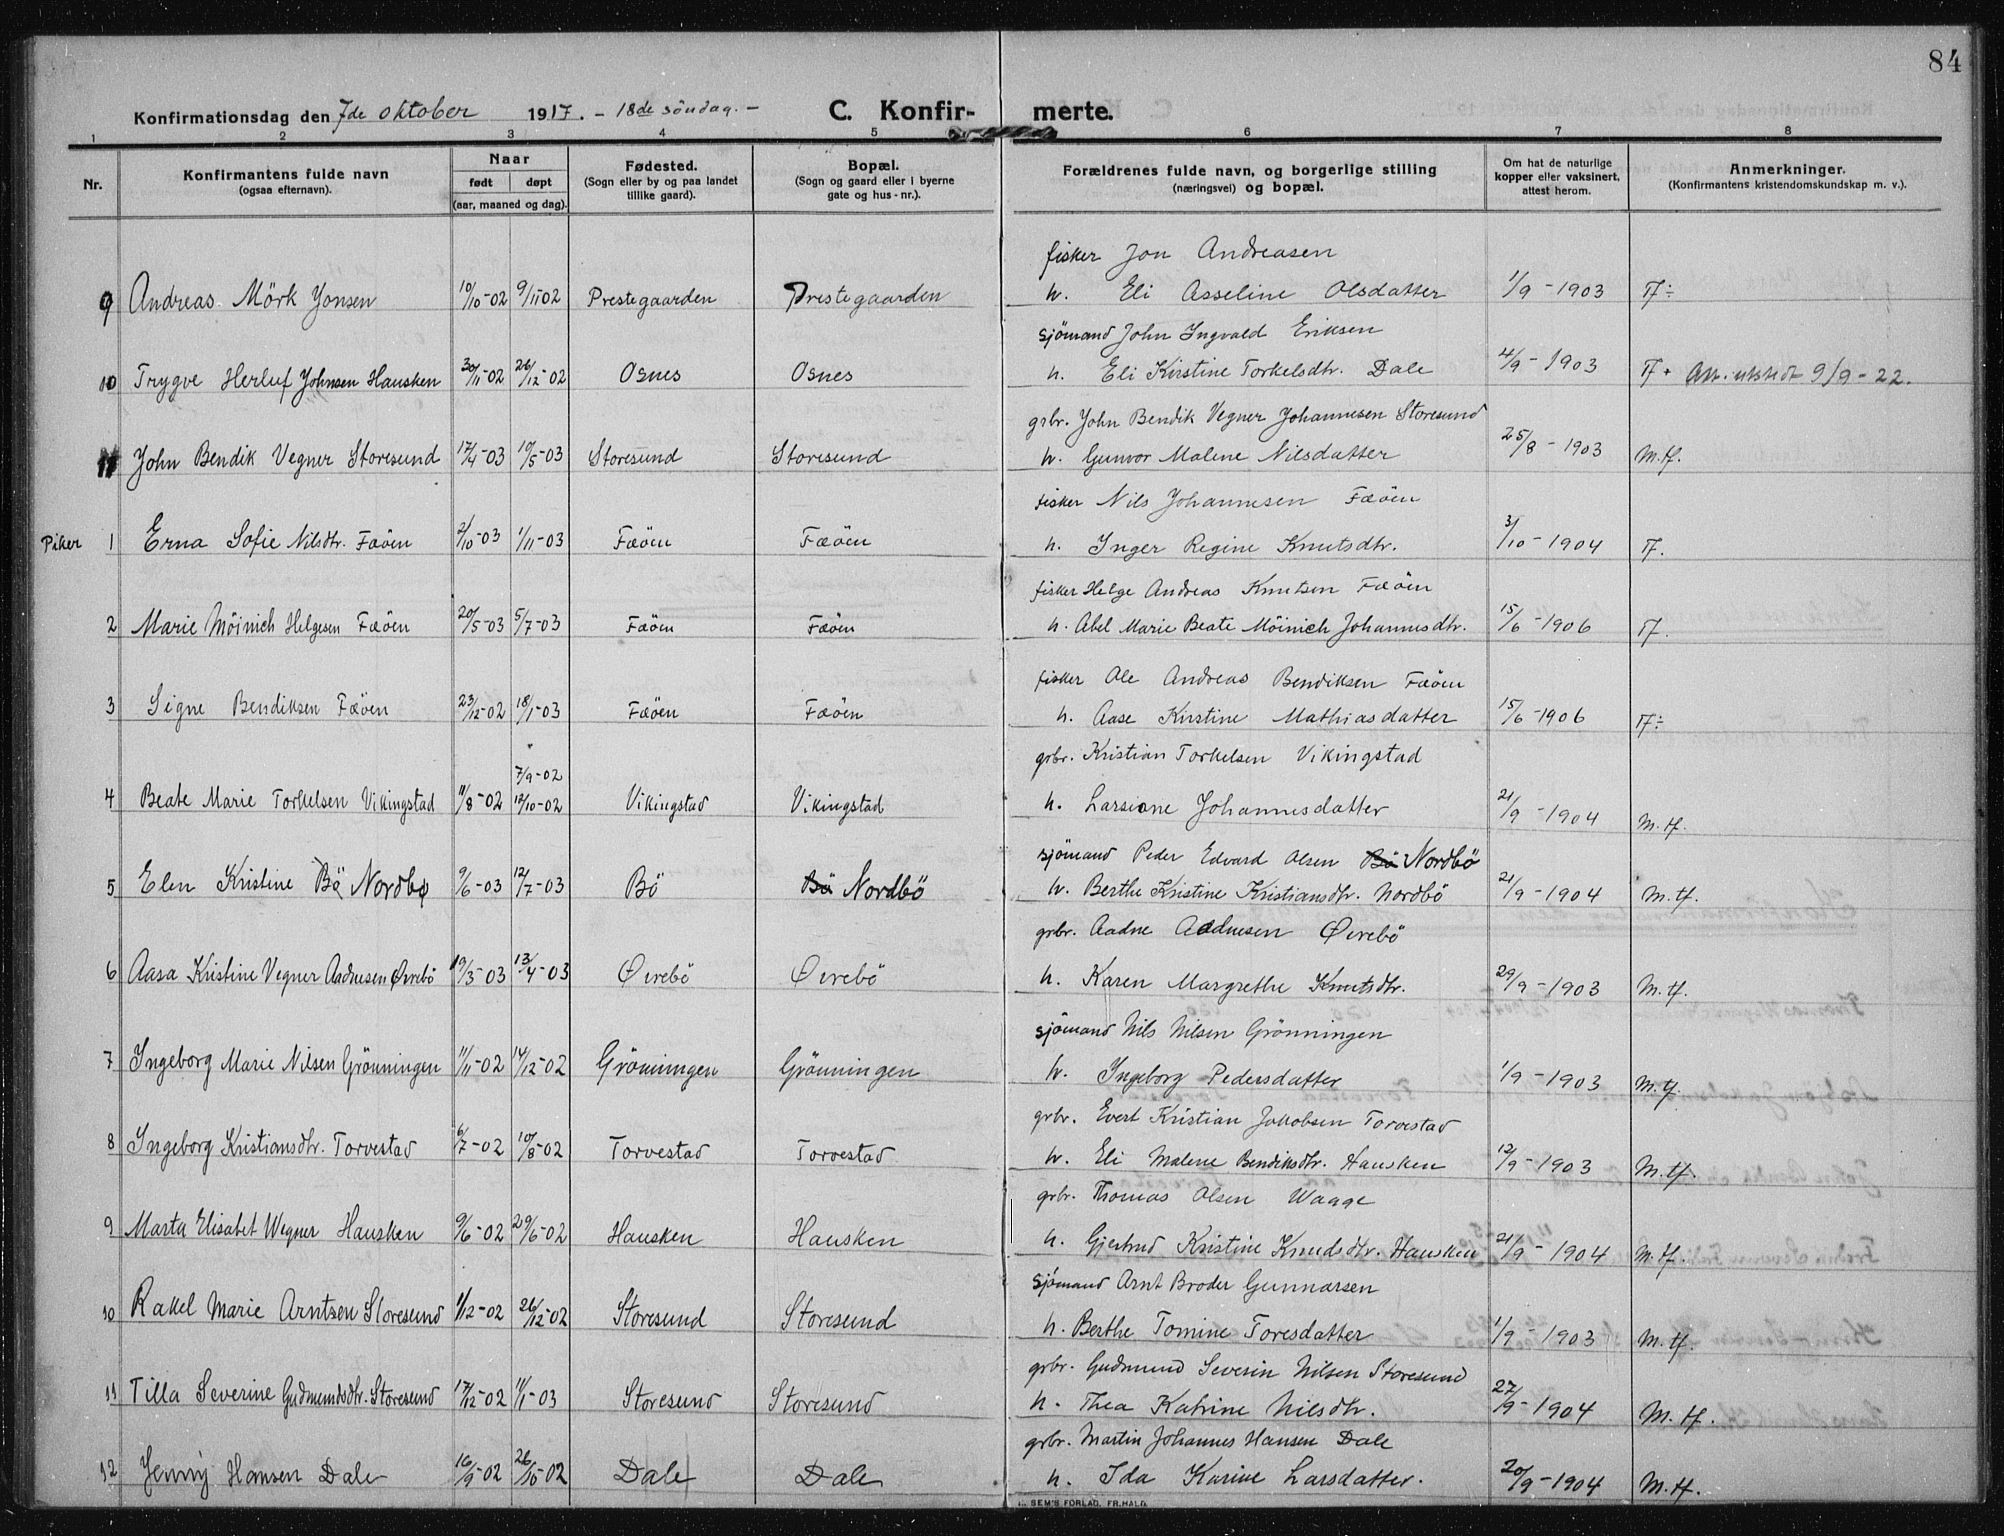 84
Konfirmationsdag den 7de oktober 1917. - 18de söndag. -
C. Konfir- merte.
1 2 3 4 5 6 7 8
Nr.
Konfirmantens fulde navn
(ogsaa efternavn).
Naar
født døpt
(aar, maaned og dag).
Fødested.
(Sogn eller by og paa landet
tillike gaard).
Bopæl.
(Sogn og gaard eller i byerne
gate og hus-nr.).
Forældrenes fulde navn, og borgerlige stilling
(næringsvei) og bopæl.
Om hat de naturlige
kopper eller vaksinert,
attest herom.
Anmerkninger.
(Konfirmantens kristendomskundskap m. v.).
fisker Jon Andreasen
9 Andreas Mörk Jonsen 10/10-02 9/11-02 Prestegaarden Prestegaarden h. Eli Asseline Olsdatter 1/9-1903 Tf ÷
sjömand John Ingvald Eriksen
10 Trygve Herluf Johnsen Hausken 30/11-02 26/12-02 Osnes Osnes h. Eli Kirstine Torkelsdtr. Dale 4/9-1903 Tf + Att. utstedt 9/9-22.
grbr. John Bendik Vegner Johannesen Storesund
11 John Bendik Vegner Storesund 17/4-03 10/5-03 Storesund Storesund h. Gunvor Malene Nilsdatter 25/8-1903 M.tf.
fisker Nils Johannesen Fæöen
Piker 1 Erna Sofie Nilsdtr. Fæöen 2/10-03 1/11-03 Fæöen Fæöen h. Inger Regine Knutsdtr. 3/10-1904 Tf.
fisker Helge Andreas Knutsen Fæöen
2 Marie Möinich Helgesen Fæöen 20/5-03 5/7-03 Fæöen Fæöen h. Abel Marie Beate Möinich Johannesdtr. 15/6-1906 Tf.
fisker Ole Andreas Bendiksen Fæöen
3 Signe Bendiksen Fæöen 23/12-02 18/1-03 Fæöen Fæöen h. Aase Kirstine Mathiasdatter 15/6-1906 Tf ÷
grbr. Kristian Torkelsen Vikingstad
7/9-02
4 Beate Marie Torkelsen Vikingstad 11/8-02 12/10-02 Vikingstad Vikingstad h. Larsiane Johannesdatter 21/9-1904 M.tf.
sjömand Peder Edvard Olsen Bö Nordbö
5 Elen Kristine Bö Nordbø 9/6-03 12/7-03 Bö Bö Nordbö h. Berthe Kristine Kristiansdtr. Nordbö 21/9-1904 M.tf.
grbr. Aadne Aadnesen Øvrebö
6 Aasa Kristine Vegner Aadnesen Øvrebö 19/3-03 13/4-03 Øvrebö Øvrebö h. Karen Margrethe Knutsdtr. 29/9-1903 M.tf.
sjömand Nils Nilsen Grönningen
7 Ingeborg Marie Nilsen Grönningen 11/11-02 14/12-02 Grönningen Grönningen h. Ingeborg Pedersdatter 1/9-1903 M.tf.
grbr. Evert Kristian Jakobsen Torvestad
8 Ingeborg Kristiansdtr. Torvestad 6/7-02 10/8-02 Torvestad Torvestad h. Eli Malene Bendiksdtr. Hausken 12/9-1903 M.tf.
grbr. Thomas Olsen Waage
9 Marta Elisabet Wegner Hausken 9/6-02 29/6-02 Hausken Hausken h. Gjertrud Kristine Knudsdtr. Hausken 21/9-1904 M.tf.
sjömand Arnt Broder Gunnarsen
10 Rakel Marie Arntsen Storesund 1/12-02 26/12-02 Storesund Storesund h. Berthe Tomine Toresdatter 1/9-1903 M.tf.
grbr. Gudmund Severin Nilsen Storesund
11 Tilla Severine Gudmundsdtr. Storesund 17/12-02 11/1-03 Storesund Storesund h. Thea Katrine Nilsdtr. 27/9-1904 M.tf.
grbr. Martin Johannes Hansen Dale
12 Jenny Hansen Dale 16/9-02 26/10-02 Dale Dale h. Ida Karine Larsdatter. 20/9-1904 M.tf.
SEM'S FORLAG, FR.HALD.